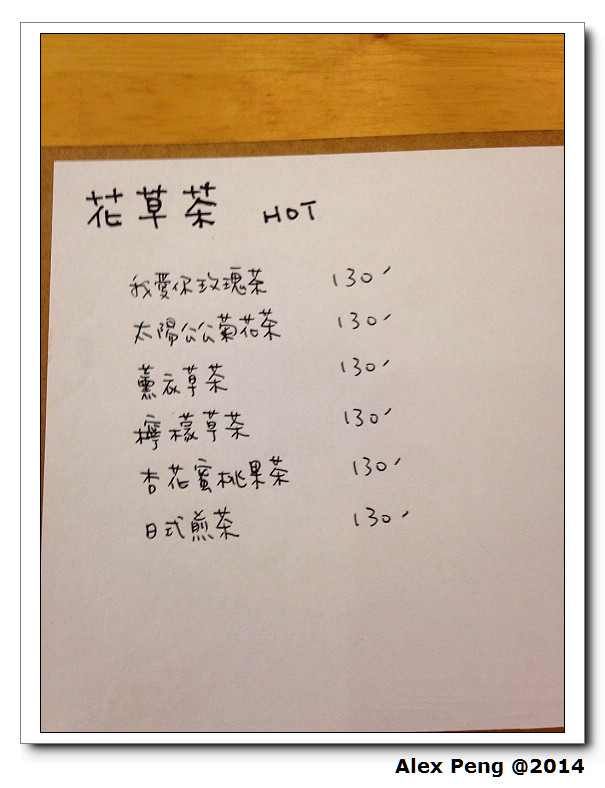 花草茶 HOT
我愛你玫瑰茶 130
太陽公公菊花茶 130
薰衣草茶 130
檸檬草茶 130
杏花蜜桃果茶 130
日式煎茶 130
Alex Peng @2014